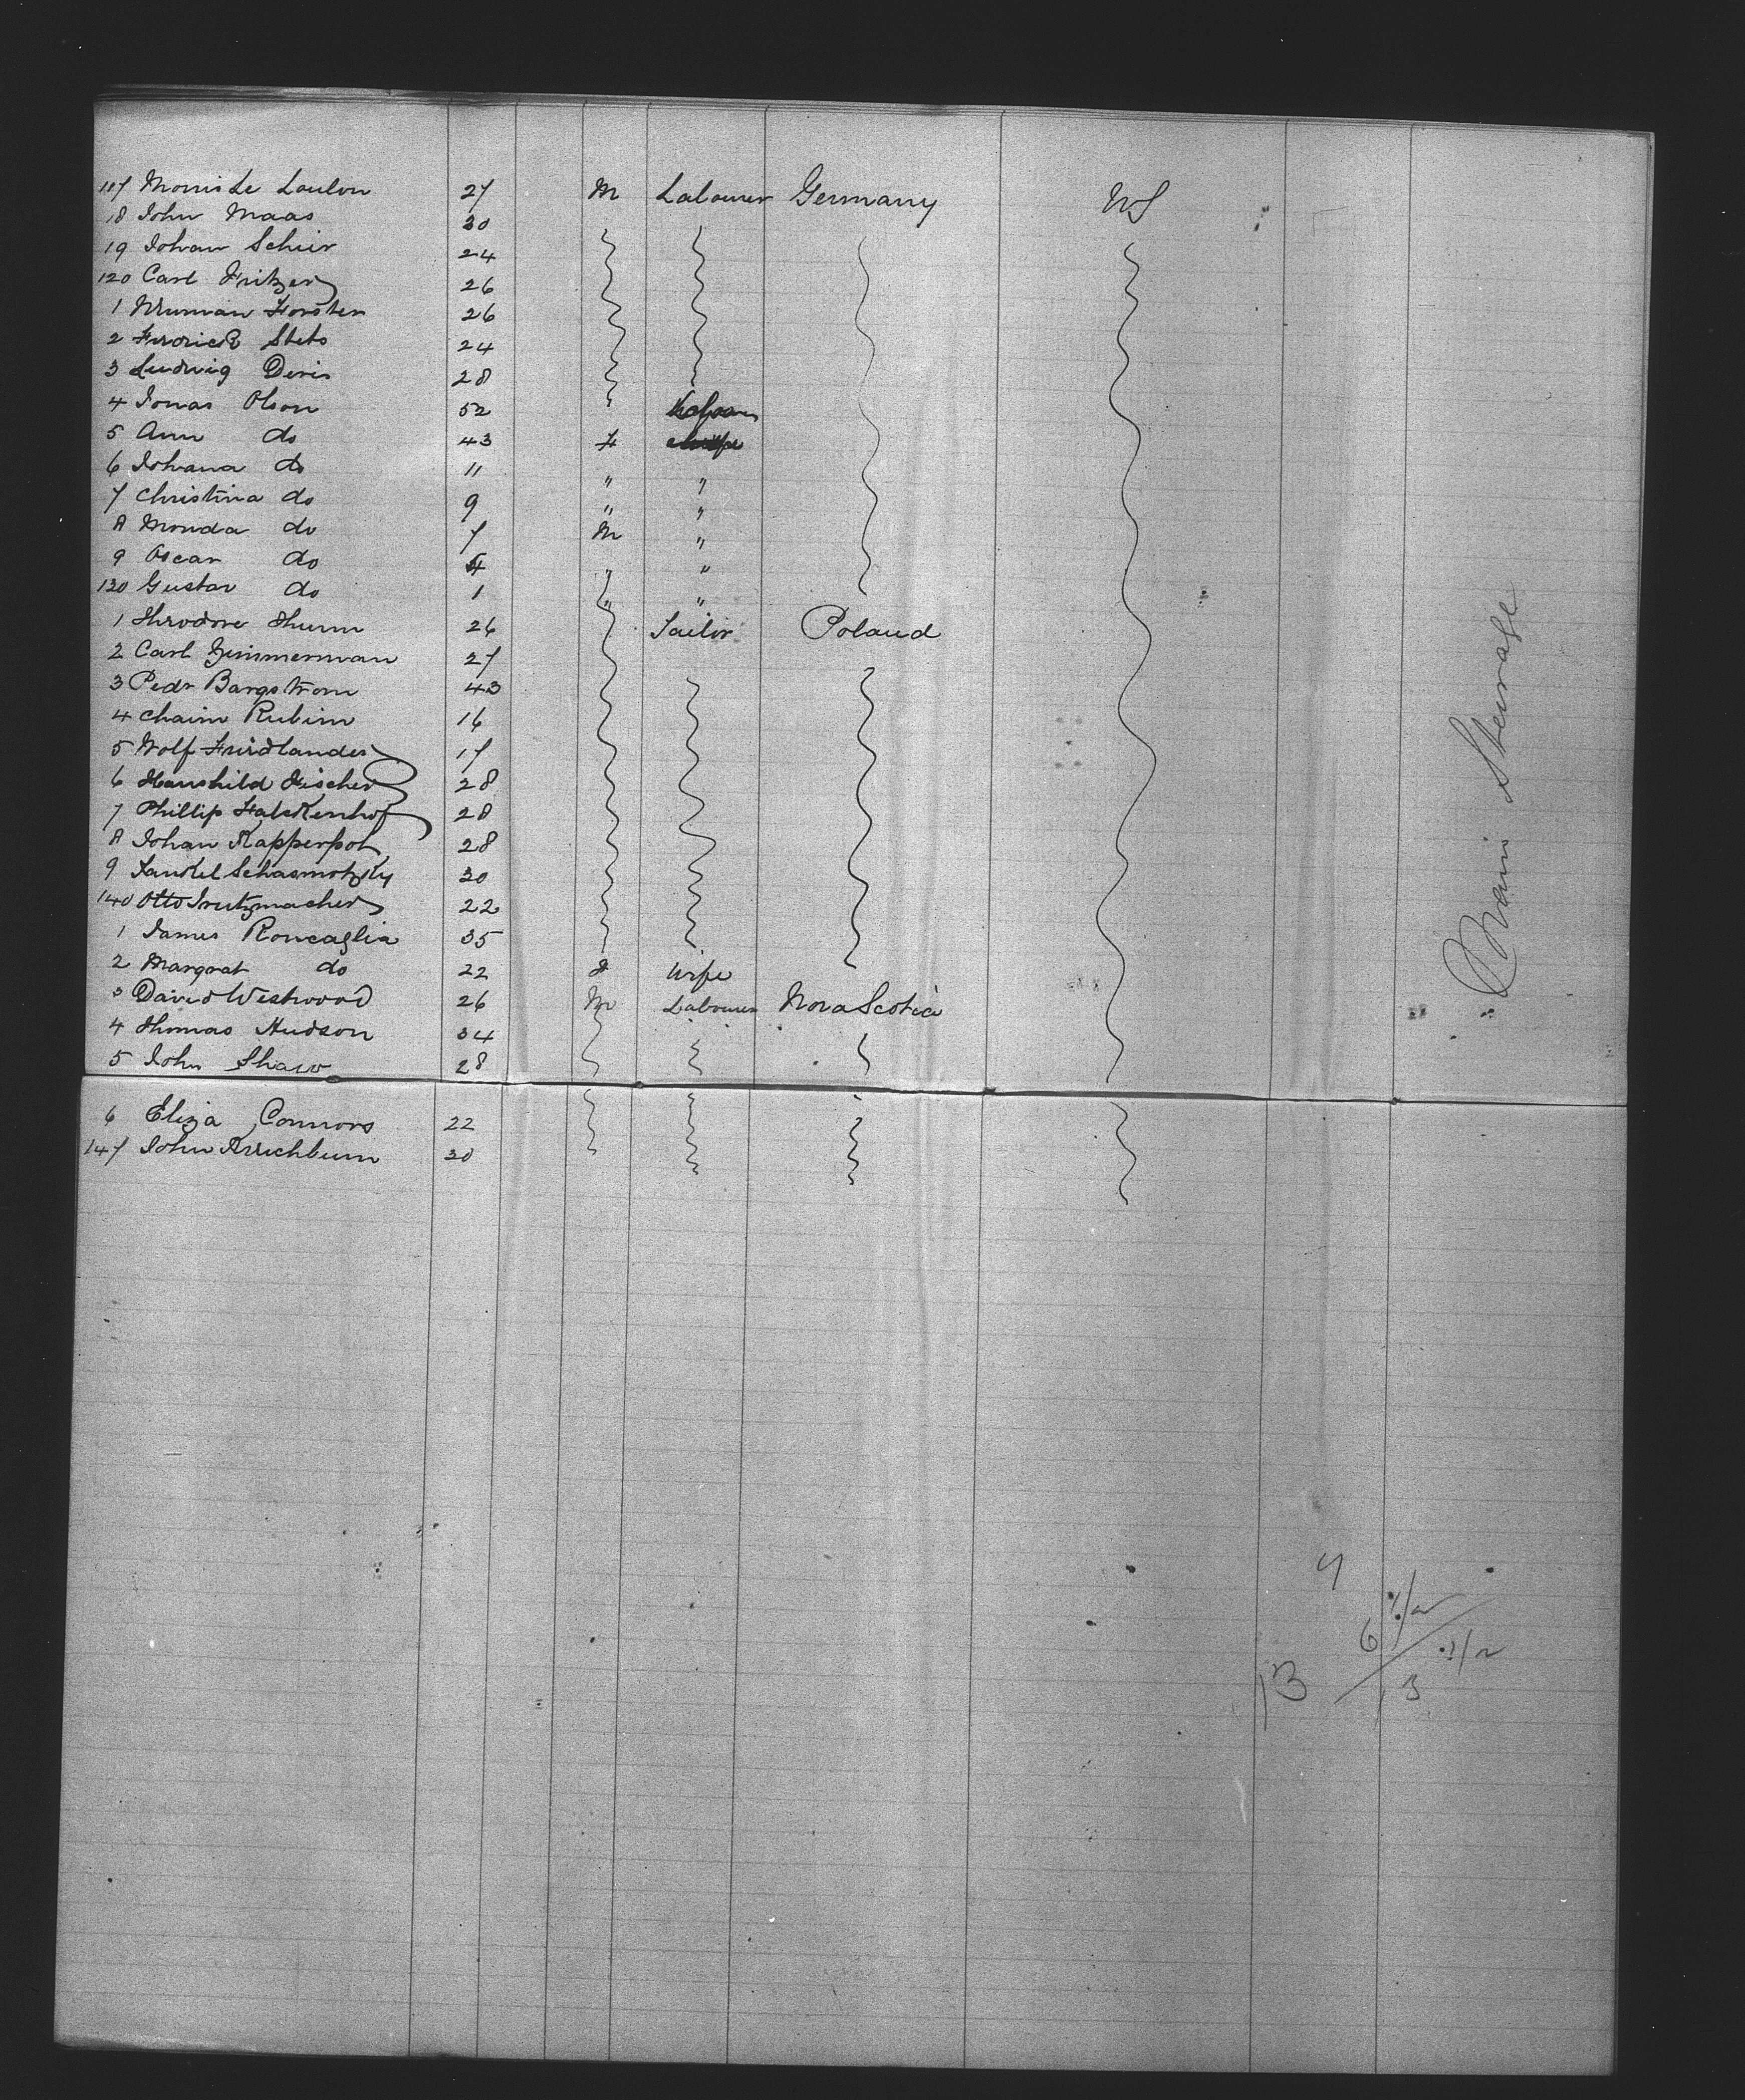 117 Morris Le Loulon 27 M Labourer Germany US
18 John Maas 30
19 Johan Schur 24
120 Carl Fritzer 26
1 Forster 26
2 Frederick Stets 24
3 Ludwig Deris 28
4 Jonas Olson 52
5 Ann do 43 F
6 Johana do 11 " "
7 Christina do 9 " "
8 Monda do 7 M "
9 Oscar do 4 " "
130 Gustav do 1 " "
1 Theodore Thumm 26 Sailor Poland
2 Carl Zimmerman 27
3 Pedr Bargstrom 43
4 Chaim Rubim 16
5 Wolf Friedlander 17
6 Hanshild Fischer 28
7 Phillip Falckenhof 28
8 Johan Kapperpot 28
9 Jankel Schasmotzky 30
140 Otto Trutzmacher 22
1 James Roncaglia 35
2 Margrat do 22 F Wife
3 David Westwood 26 M Labourer Nova Scotia
4 Thomas Hudson 34
5 John Shaw 28
6 Eliza Connors 22
147 John 30
Main Steerage
9
6 1/2
1/2
13
13